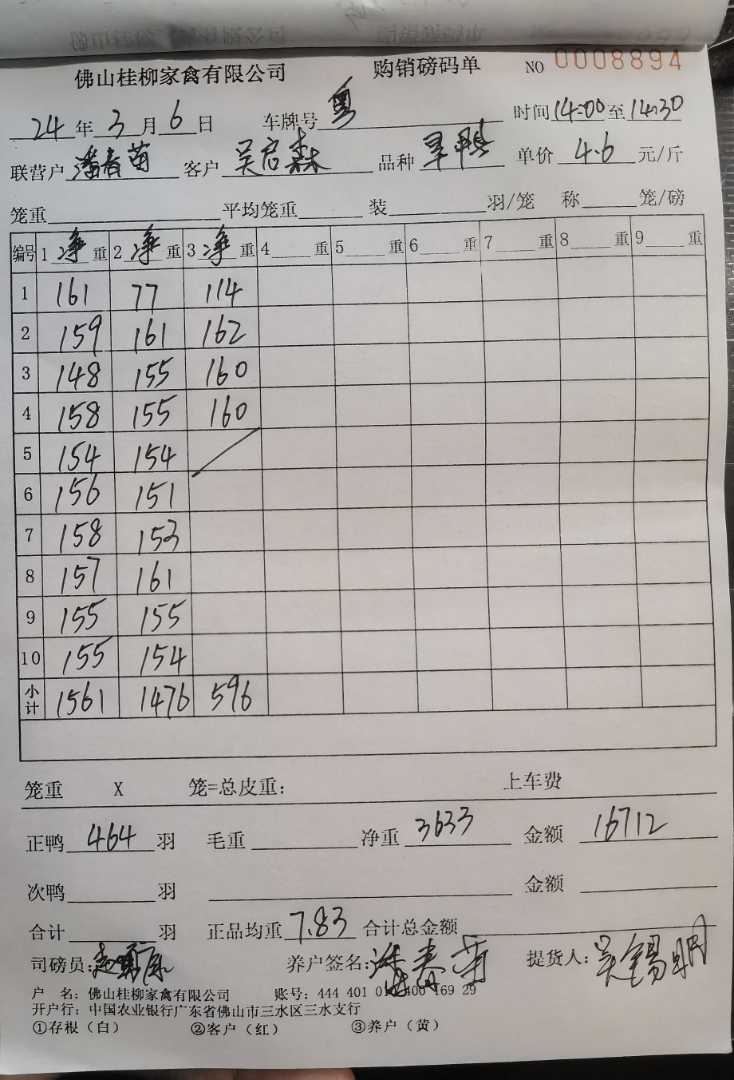 佛山桂柳家禽有限公司 购销磅码单 NO 0008894
24年3月6日 车牌号 粤 时间14:00至14:30
联营户 潘春苗 客户 吴启森 品种 单价 4.6 元/斤
笼重 平均笼重 装 羽/笼 称 笼/磅
编号 1净重 2净重 3净重 4 重 5 重 6 重 7 重 8 重 9 重
1 161 77 114
2 159 161 162
3 148 155 160
4 158 155 160
5 154 154
6 156 151
7 158 153
8 157 161
9 155 155
10 155 154
小计 1561 1476 596
笼重 X 笼=总皮重: 上车费
正鸭 464 羽 毛重 净重 3633 金额 16712
次鸭 羽 金额
合计 羽 正品均重 7.83 合计总金额
司磅员: 养户签名: 潘春苗 提货人: 吴锡明
户 名: 佛山桂柳家禽有限公司 账号: 444 401 400 169 29
开户行: 中国农业银行广东省佛山市三水区三水支行
①存根（白） ②客户（红） ③养户（黄）